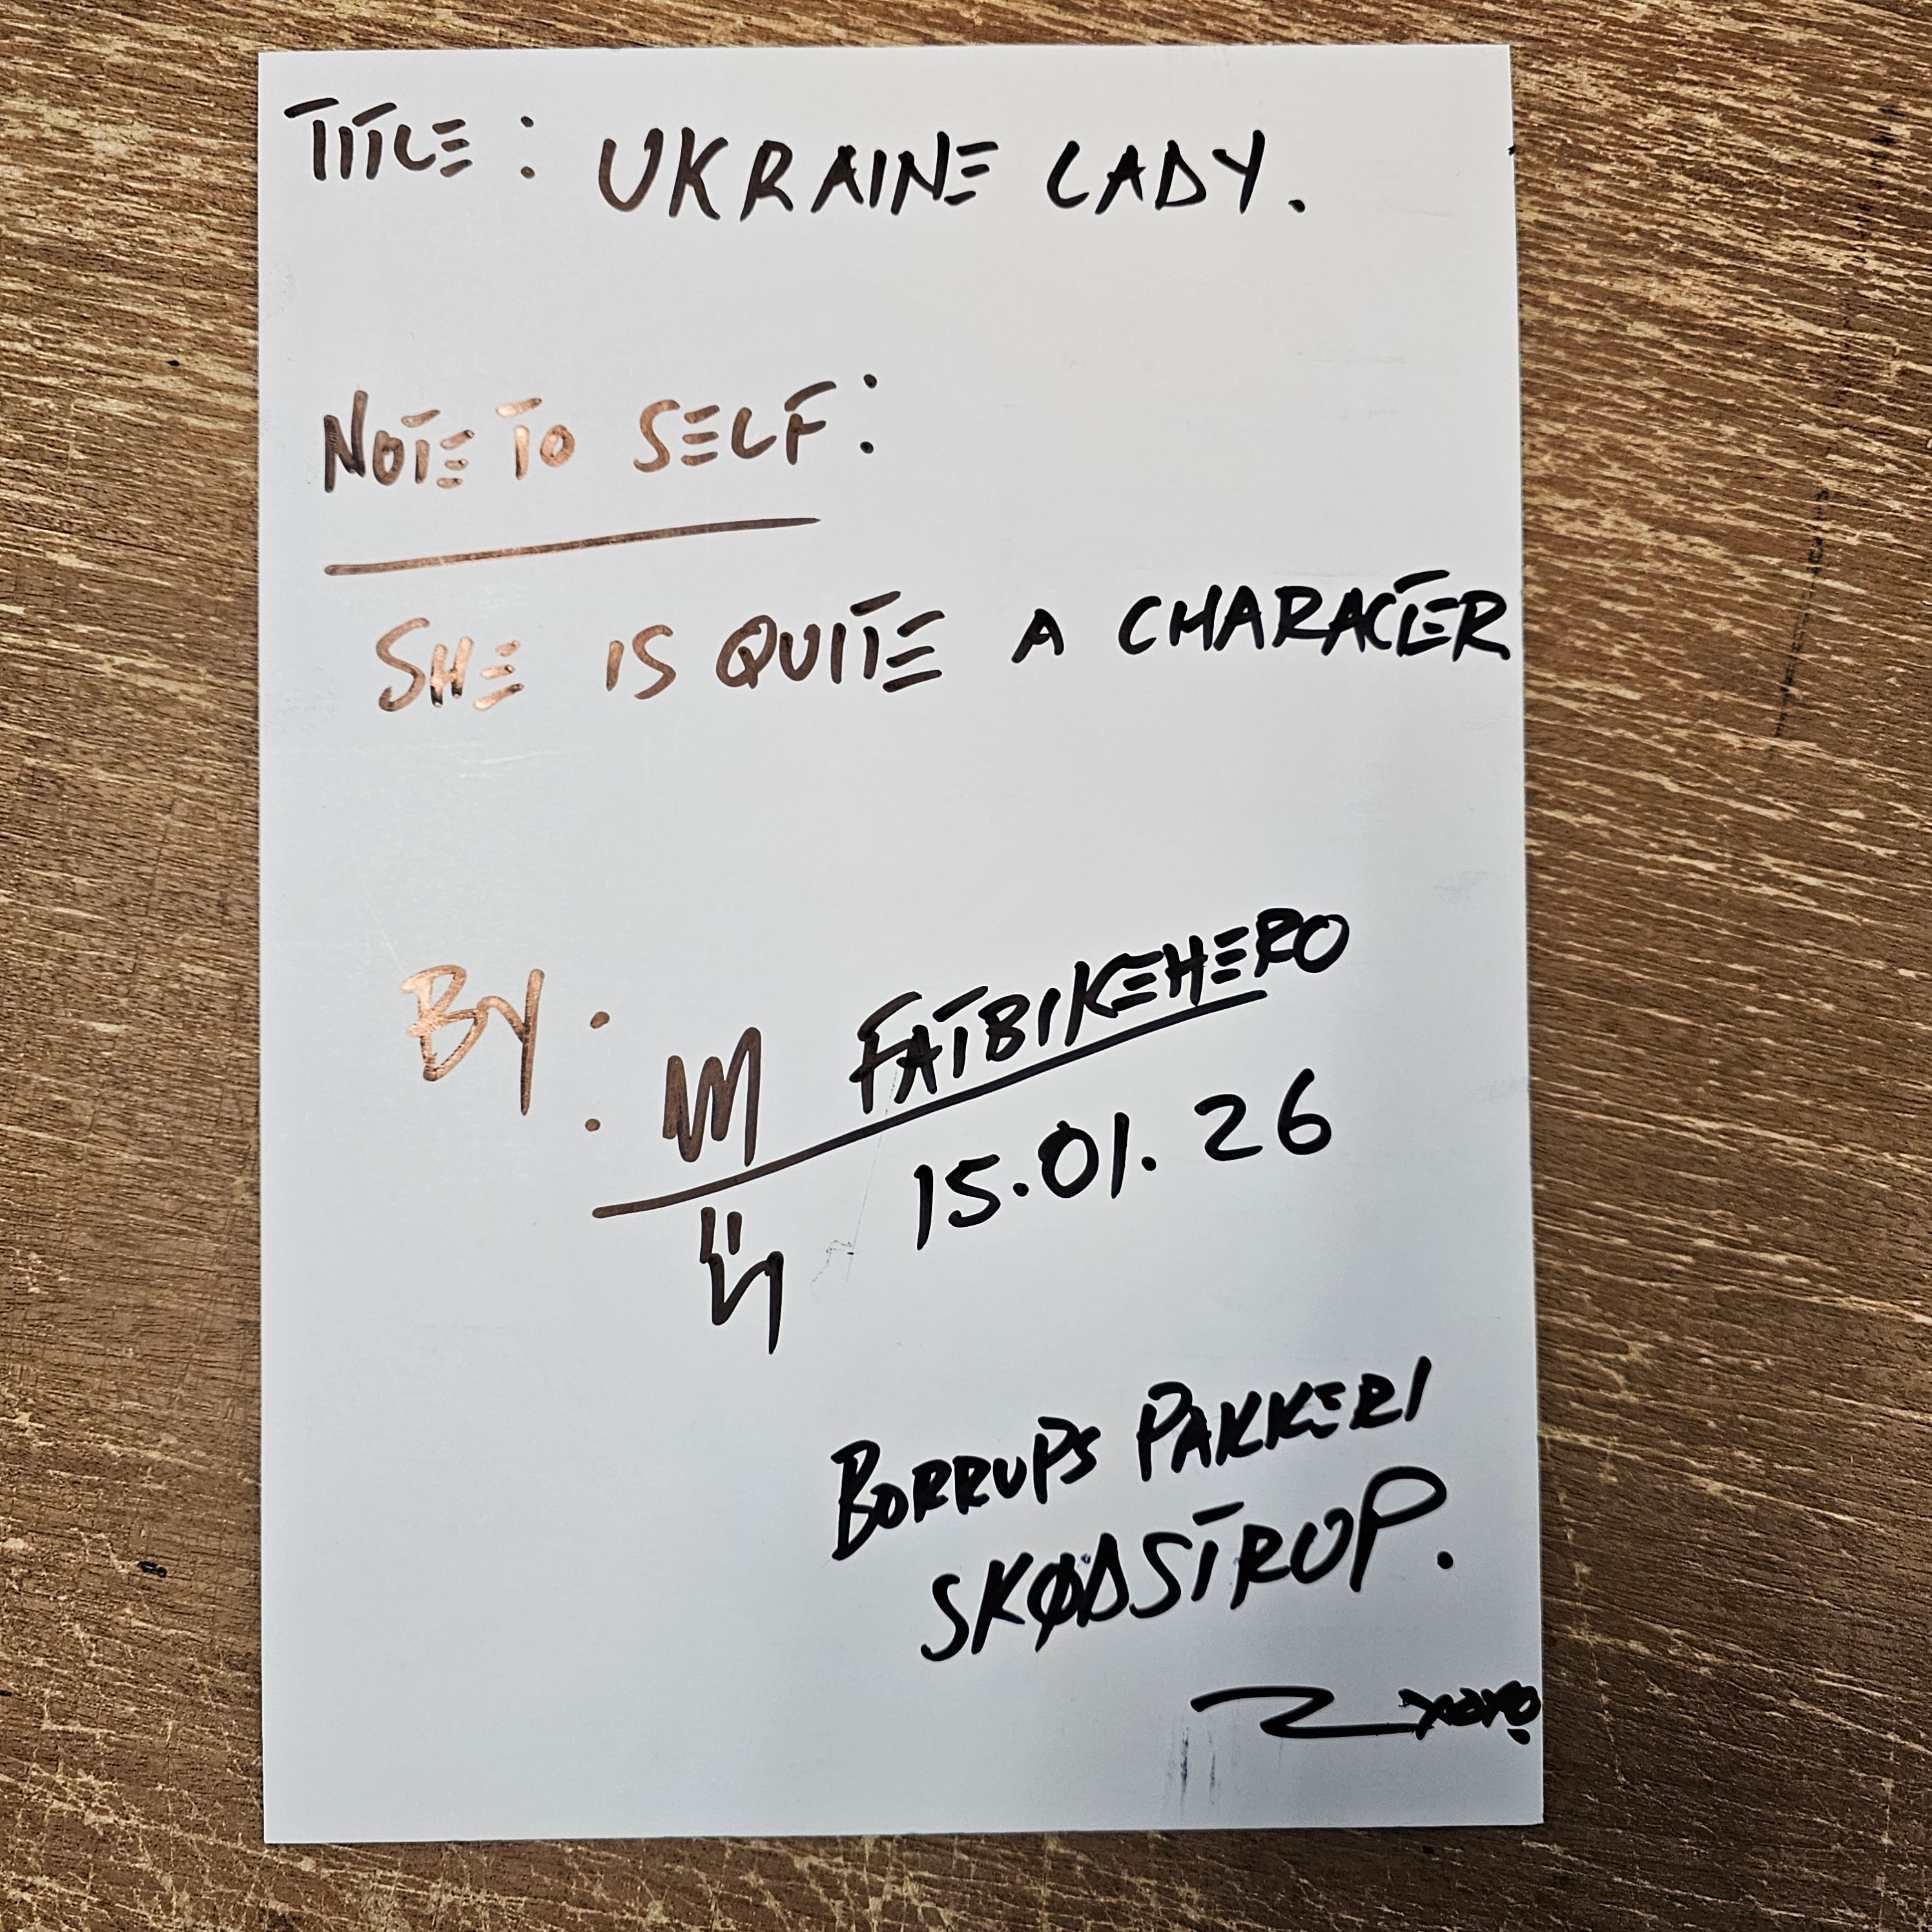 TITLE: UKRAINE LADY.
NOTE TO SELF:
SHE IS QUITE A CHARACTER
BY: FATBIKEHERO
15.01.26
BORRUPS PAKKERI
SKØDSTROP.
xoxo